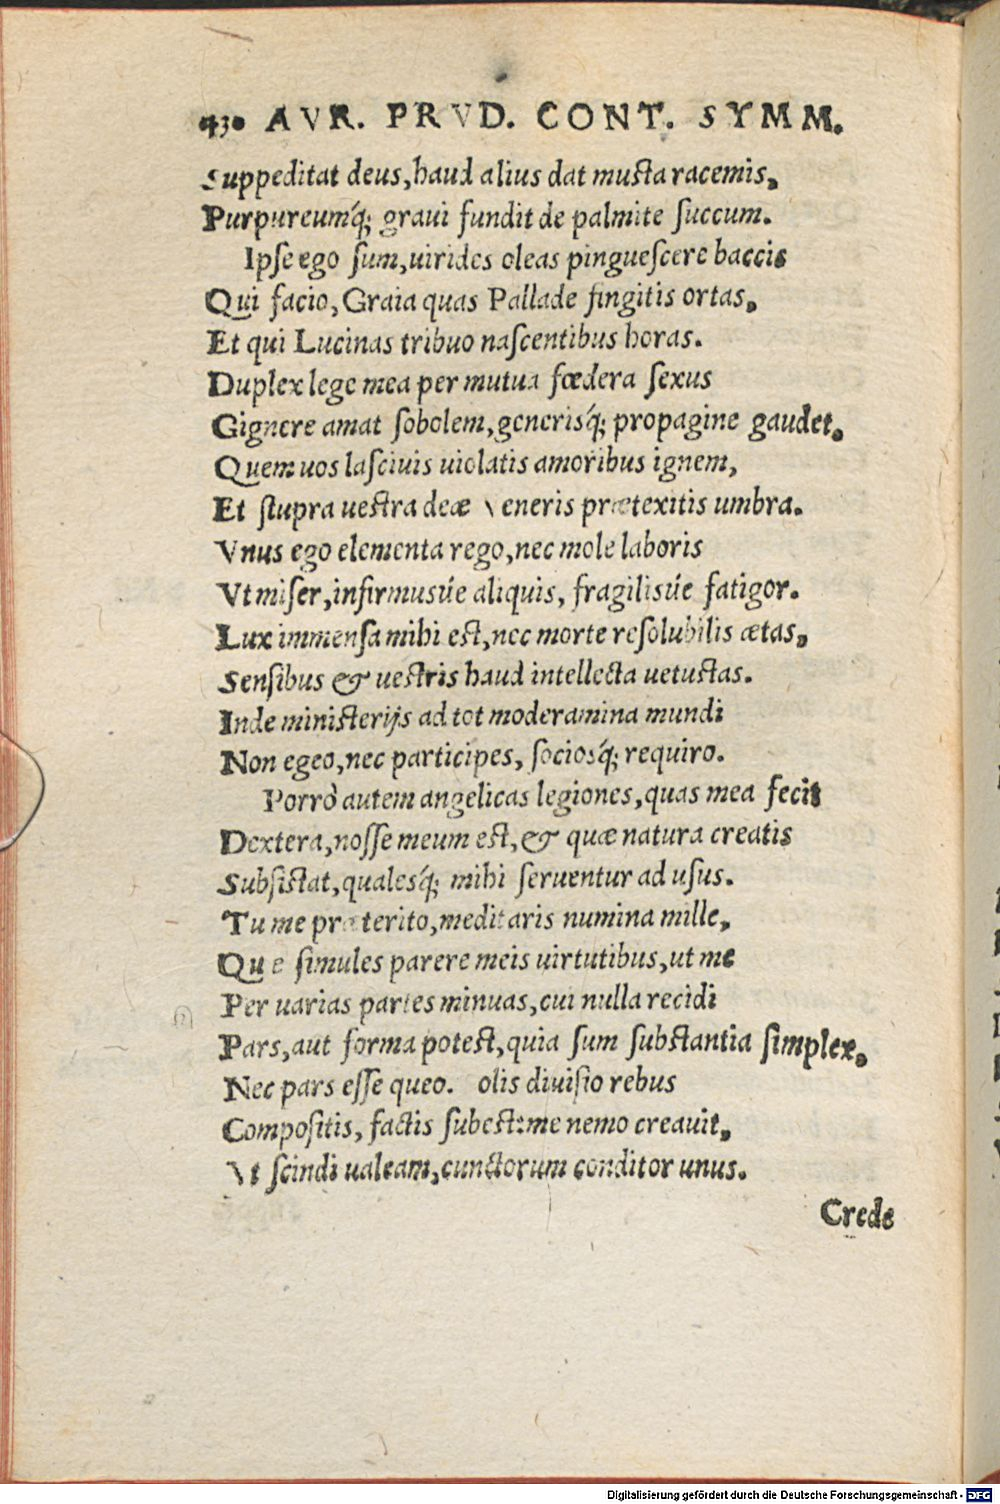 430 AVR. PRVD. CONT. SYMM.
Suppeditat deus, haud alius dat musta racemis,
Purpureumq́; graui fundit de palmite succum.
Ipse ego sum, uirides oleas pinguescere baccis
Qui facio, Graia quas Pallade fingitis ortas,
Et qui Lucinas tribuo nascentibus horas.
Duplex lege mea per mutua fœdera sexus
Gignere amat sobolem, generisq́; propagine gaudet,
Quem uos lasciuis uiolatis amoribus ignem,
Et stupra uestra deæ Veneris prætexitis umbra.
Vnus ego elementa rego, nec mole laboris
Vt miser, infirmusúe aliquis, fragilisúe fatigor.
Lux immensa mihi est, nec morte resolubilis ætas,
Sensibus & uestris haud intellecta uetustas.
Inde ministerijs ad tot moderamina mundi
Non egeo, nec participes, sociosq́; requiro.
Porrò autem angelicas legiones, quas mea fecit
Dextera, nosse meum est, & quæ natura creatis
Subsistat, qualesq́; mihi seruentur ad usus.
Tu me præterito, meditaris numina mille,
Que simules parere meis uirtutibus, ut me
Per uarias partes minuas, cui nulla recidi
Pars, aut forma potest, quia sum substantia simplex,
Nec pars esse queo. olis diuisio rebus
Compositis, factis subest: me nemo creauit,
Vt scindi ualeam, cunctorum conditor unus.
Crede
Digitalisierung gefördert durch die Deutsche Forschungsgemeinschaft - DFG